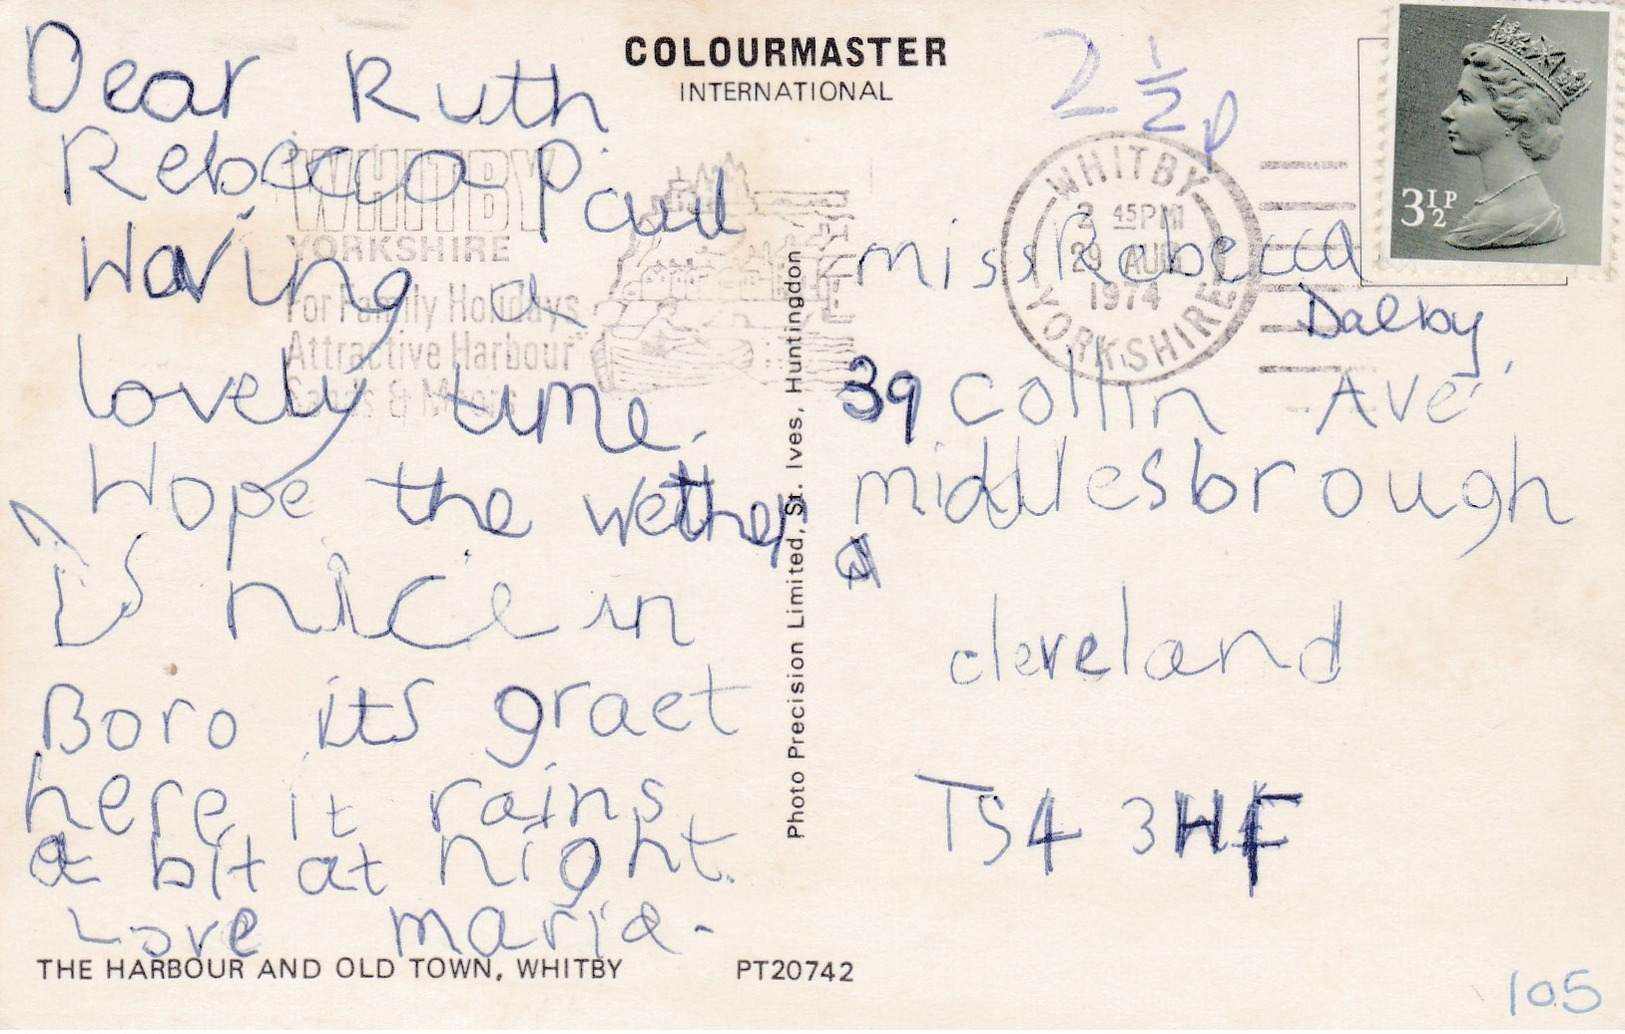 Dear Ruth
Rebecca Paul
Having a
lovely time.
Hope the wether
is nice in
Boro its graet
here it rains
a bit at night.
Love maria.
THE HARBOUR AND OLD TOWN, WHITBY
PT20742
COLOURMASTER
INTERNATIONAL
Photo Precision Limited, St. Ives, Huntingdon
WHITBY
YORKSHIRE
For Family Holidays
Attractive Harbour
Sands & Moors
2½p
WHITBY
2 45PM
29 AUG
1974
YORKSHIRE
3½P
miss Rebecca
Dalby,
39 collin Ave
middlesbrough
cleveland
TS4 3HF
105